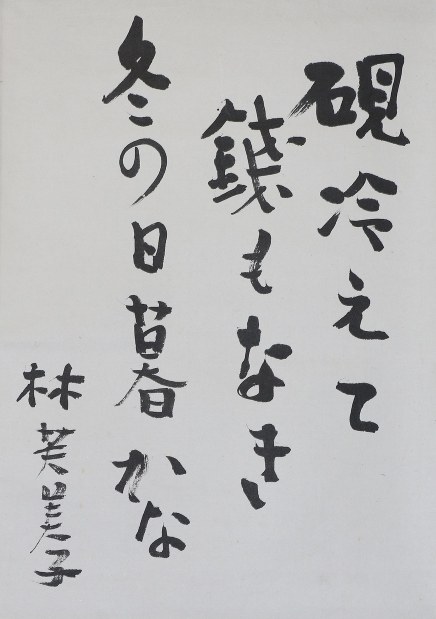 硯冷えて
錢もなき
冬の日暮かな
林芙美子